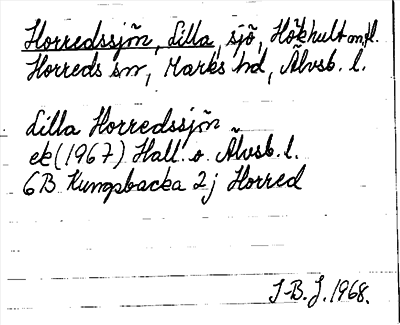 Horredssjön, Lilla, sjö, Hökhult m.fl.
Horreds sn, Marks hd, Älvsb. l.
Lilla Horredssjön
ek (1967) Hall. o. Älvsb. l.
6B Kungsbacka 2j Horred
J-B. J. 1968.